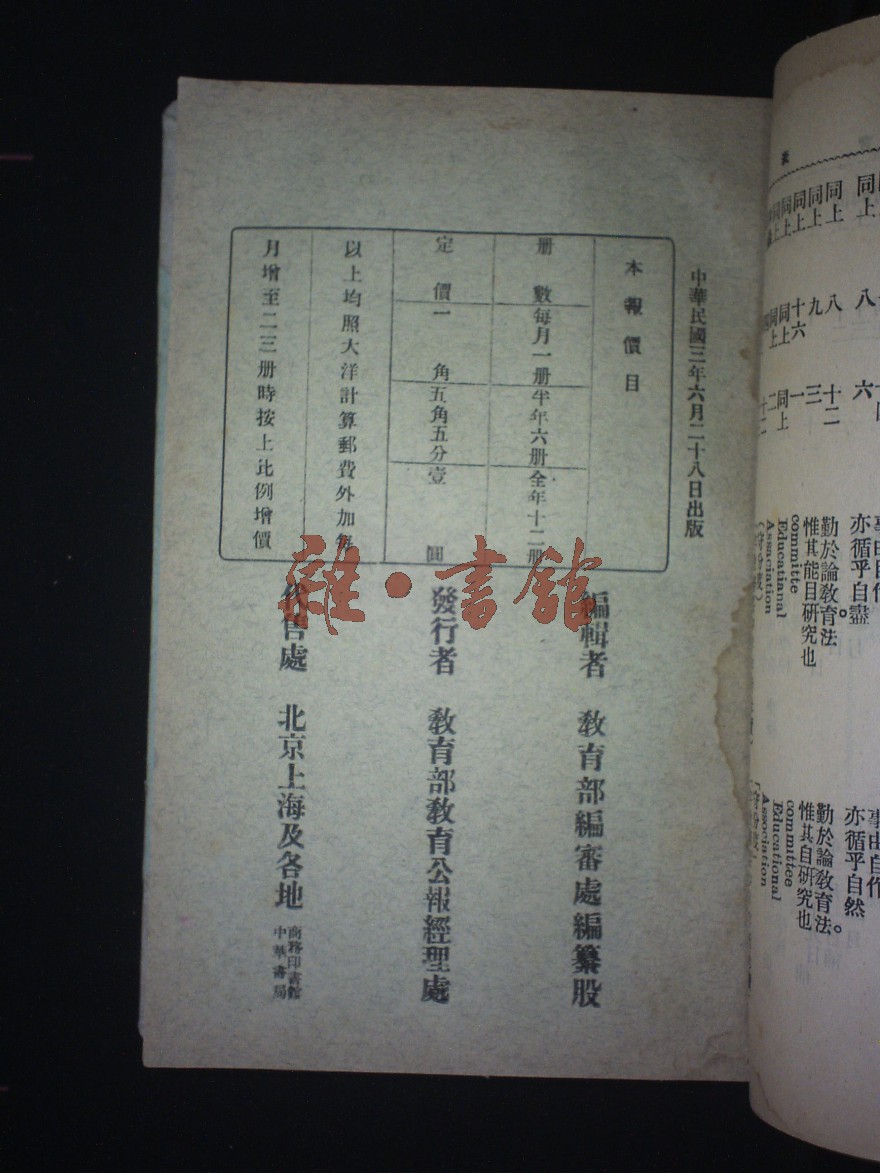 中華民國三年六月二十八日出版
本報價目
册數 每月一册 半年六册 全年十二册
定價 一角 五角五分 壹圓
以上均照大洋計算郵費外加每
月增至二三册時按上比例增價
編輯者 教育部編審處編纂股
發行者 教育部教育公報經理處
代售處 北京上海及各地
商務印書館
中華書局
雜·書館
同上 八 六
同上 八 十二
同上 九 三
同上 十六 一
同上 同上 同上
亦循乎自盡
勤於論敎育法。
惟其能目研究也
committe
Educatianal
Assaciation
亦循乎自然
勤於論敎育法。
惟其自研究也
committee
Educational
Association